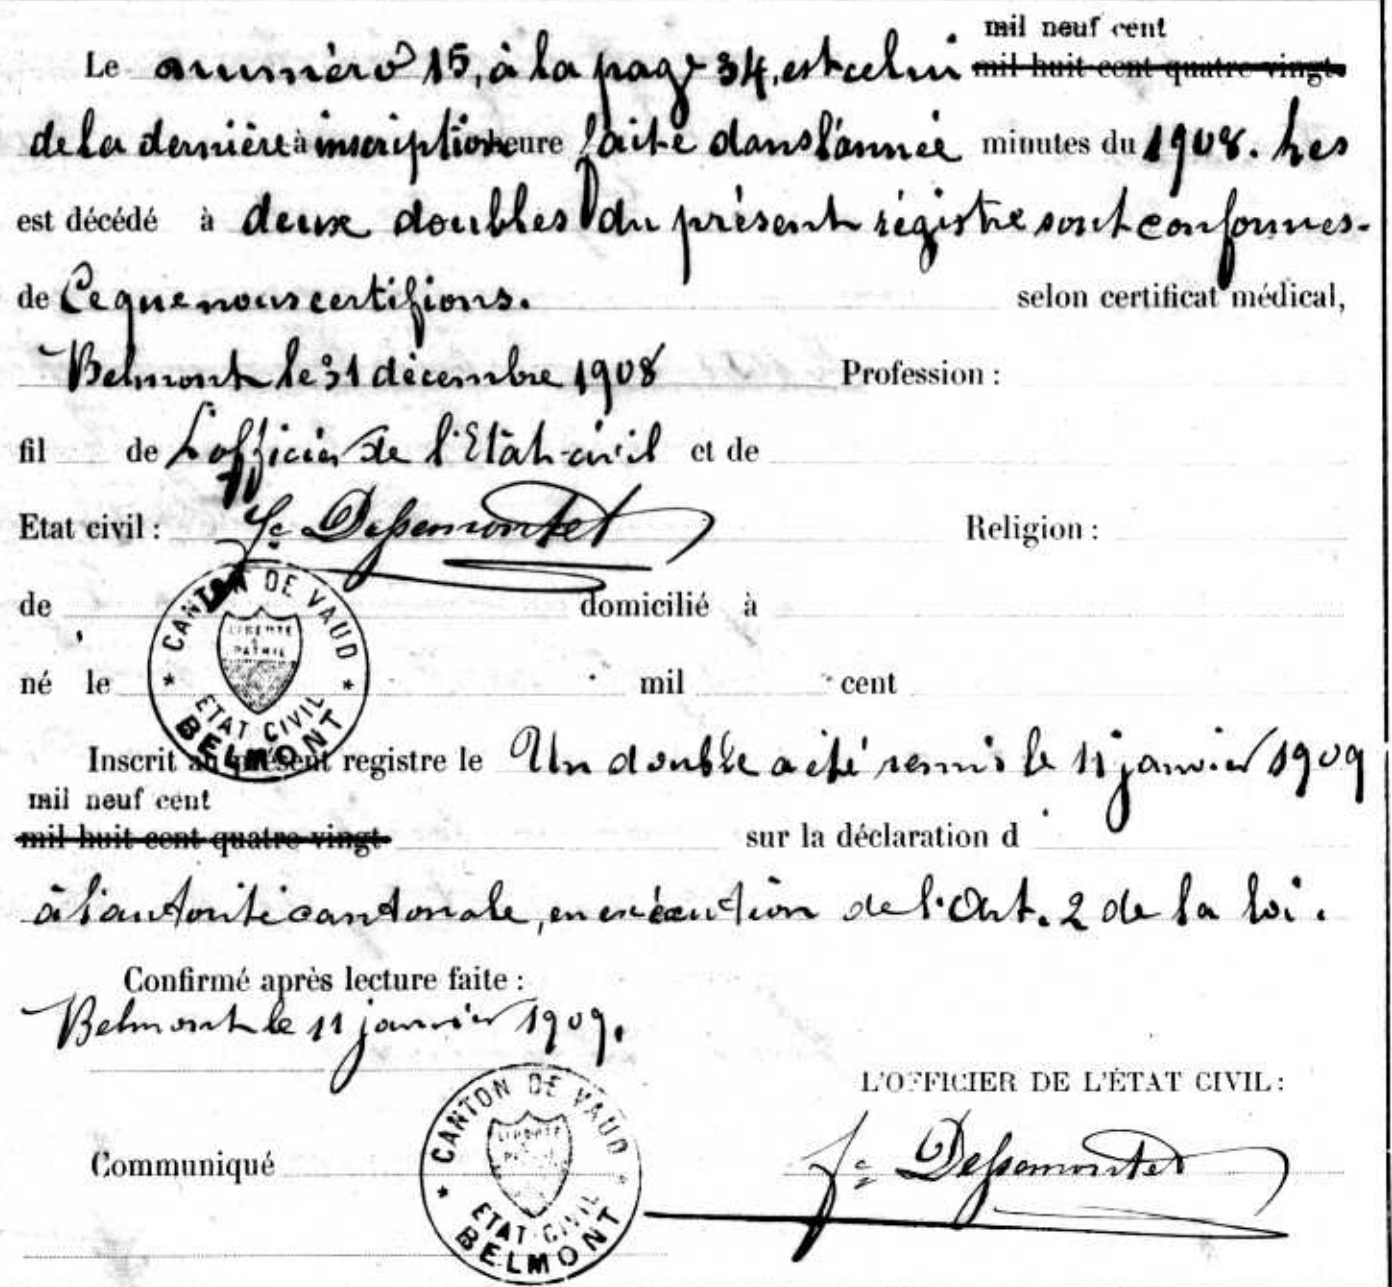 mil neuf cent
Le numéro 15, à la page 34, est celui mil huit cent quatre-vingt
de la dernière à inscription heure faite dans l'année minutes du 1908. Les
est décédé à deux doubles du présent régistre sont conformes.
de Ce que nous certifions. selon certificat médical,
Belmont le 31 décembre 1908 Profession :
fil de L'officier de l'Etat-civil et de
Etat civil : Jc Dessemontet Religion :
CANTON DE VAUD
LIBERTÉ
PATRIE
de domicilié à
né le mil cent
ETAT CIVIL
BELMONT
Inscrit au présent registre le Un double a été remis le 11 janvier 1909
mil neuf cent
mil huit cent quatre-vingt sur la déclaration d
à l'autorité cantonale, en exécution de l'Art. 2 de la loi.
Confirmé après lecture faite :
Belmont le 11 janvier 1909.
L'OFFICIER DE L'ÉTAT CIVIL :
CANTON DE VAUD
LIBERTÉ
Communiqué Jc Dessemontet
ETAT CIVIL
BELMONT